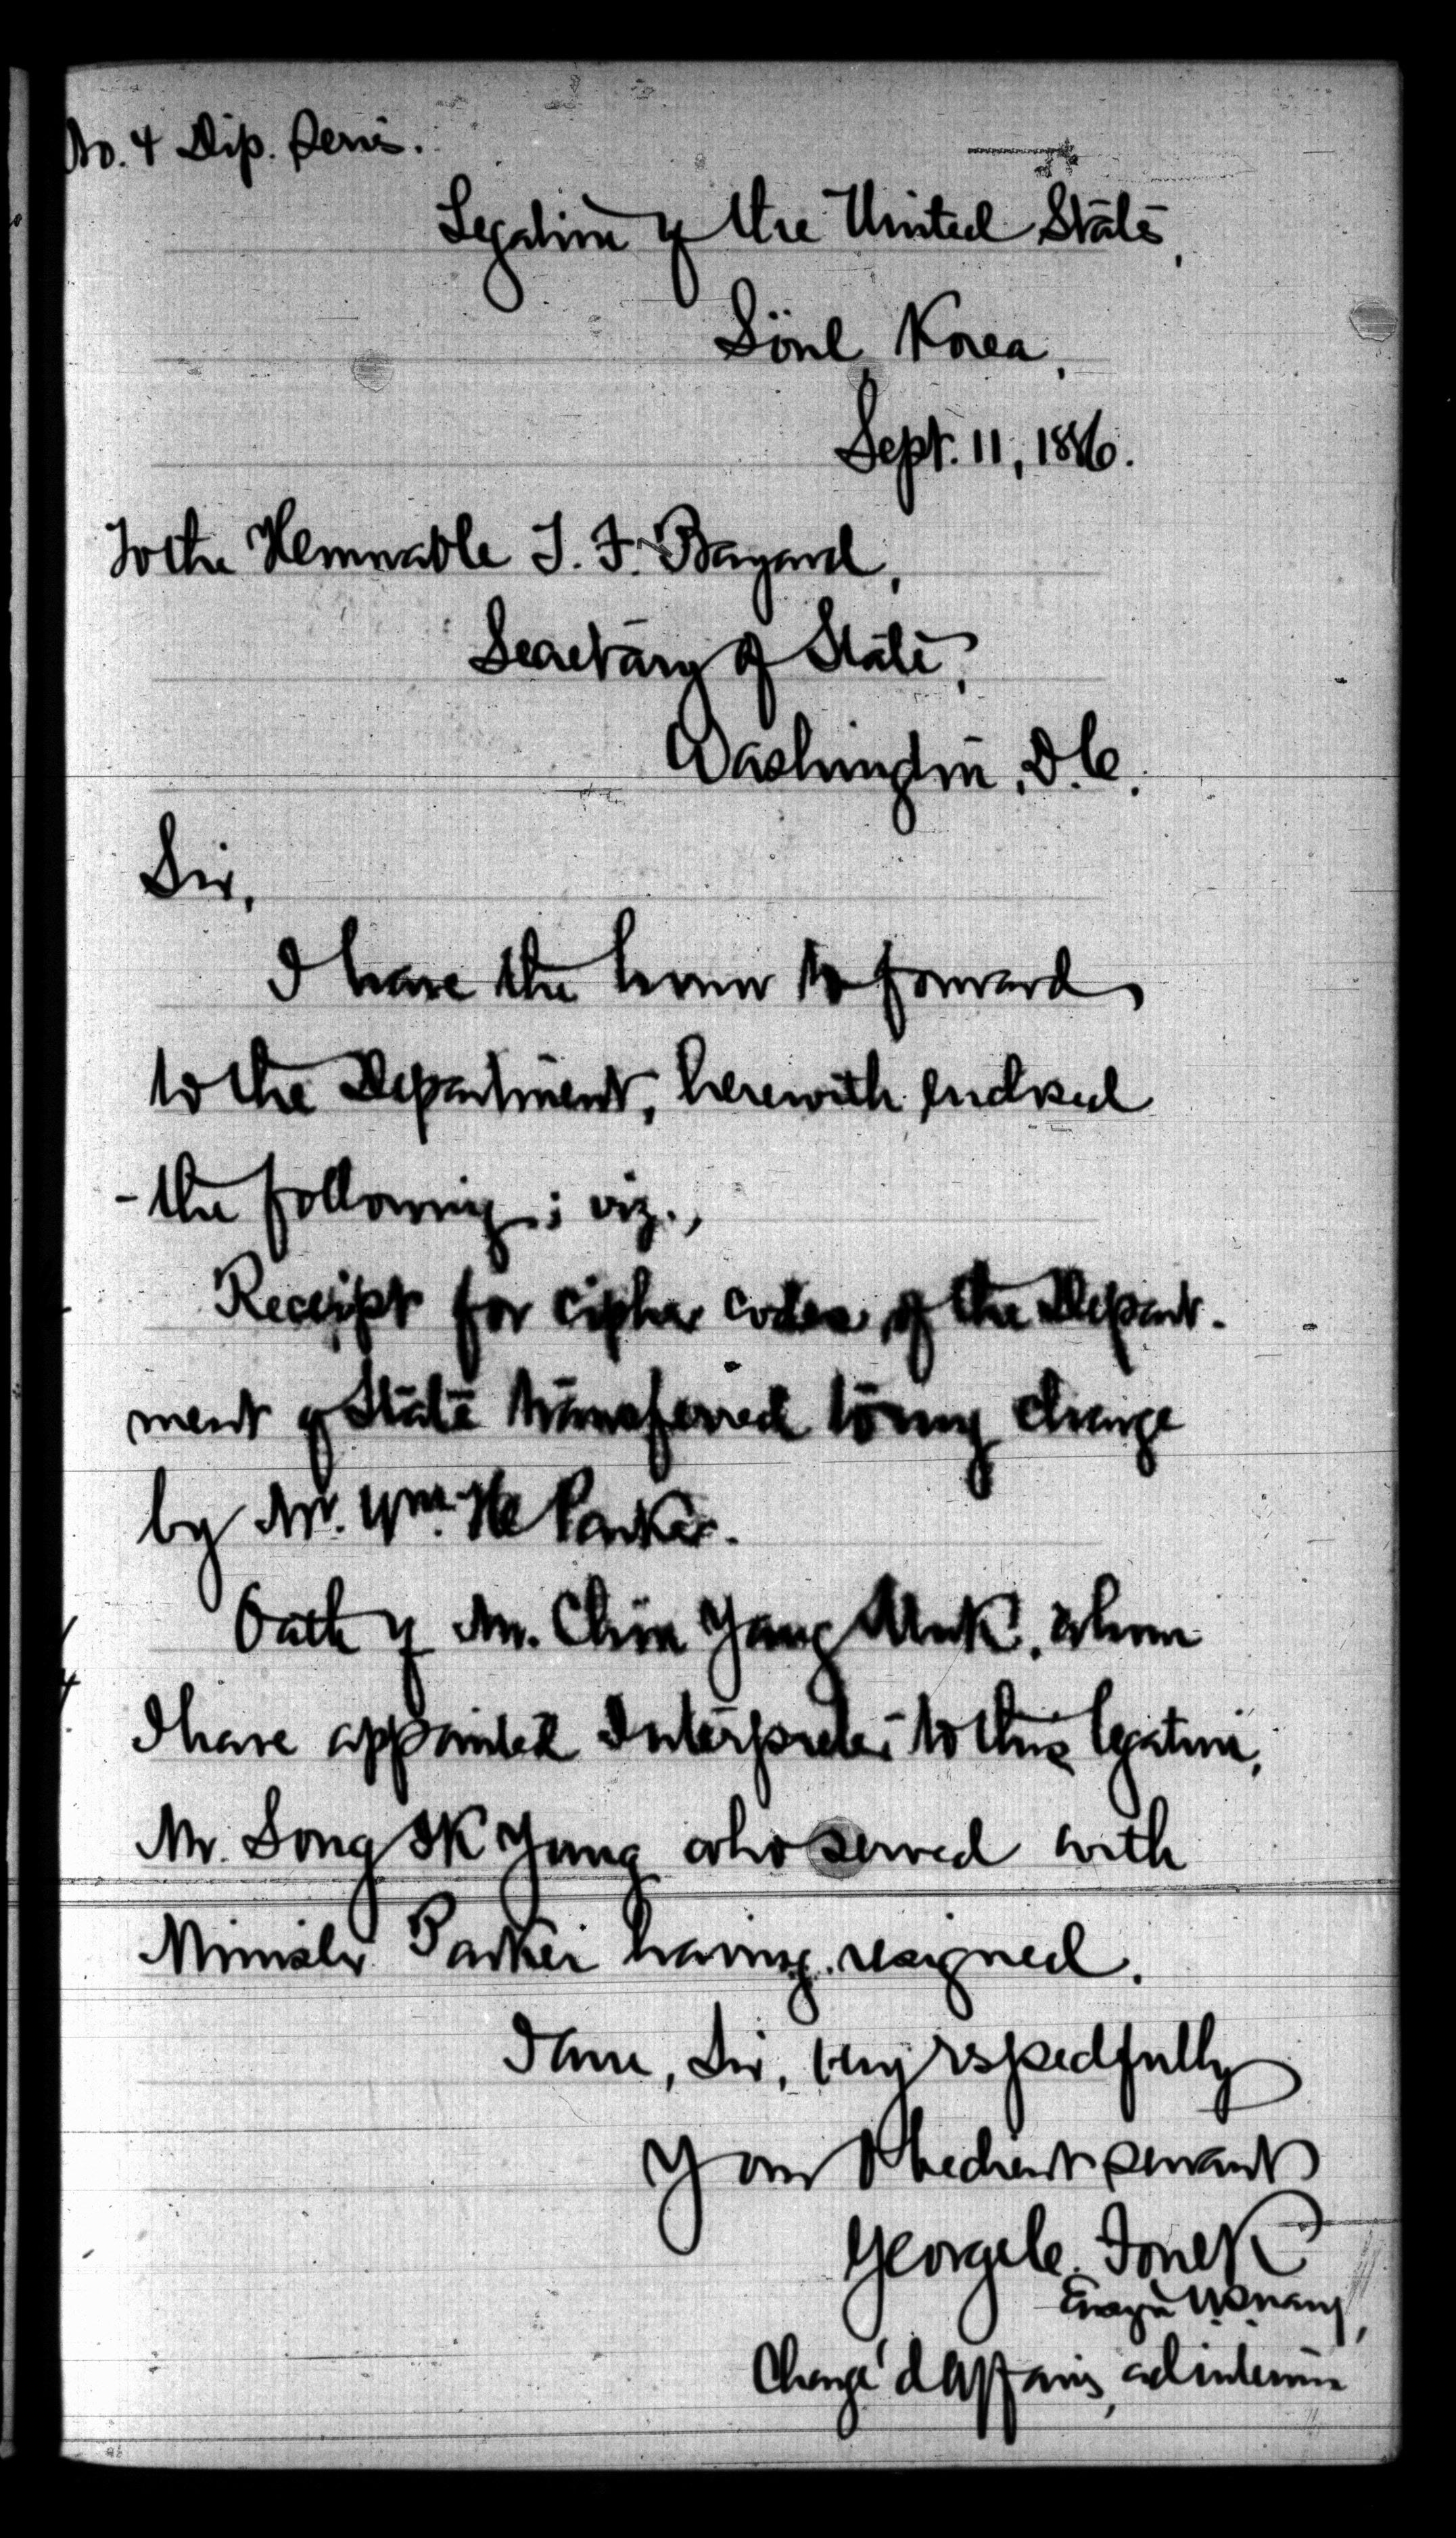 No. 4 Dip. Series.
Legation of the United States,
Söul, Korea,
Sept. 11, 1886.
To the Honorable T. F. Bayard,
Secretary of State,
Washington, D.C.
Sir,
I have the honor to forward
to the Department, herewith enclosed
the following; viz.,
Receipt for cipher codes of the Depart-
ment of State transferred to my charge
by Mr. Wm. H. Parker.
Oath of Mr. Chun Yang Muk, whom
I have appointed Interpreter to this legation,
Mr. Song IK Yong who served with
Minister Parker having resigned.
I am, Sir, very respectfully
Your obedient servant
George C. Foulk
Ensign U.S. Navy,
Chargé d'Affaires, ad interim